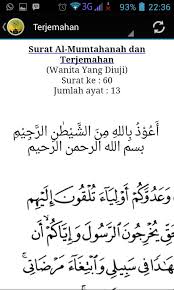 3G 93% 22:36
Terjemahan
Surat Al-Mumtahanah dan
Terjemahan
(Wanita Yang Diuji)
Surat ke : 60
Jumlah ayat : 13
أَعُوْذُ بِاللهِ مِنَ الشَّيْطٰنِ الرَّجِيْمِ
بسم الله الرحمن الرحيم
وَعَدُوَّكُمْ أَوْلِيَآءَ تُلْقُونَ إِلَيْهِم
يُخْرِجُونَ ٱلرَّسُولَ وَإِيَّاكُمْ أَن
فِى سَبِيلِى وَٱبْتِغَآءَ مَرْضَاتِى